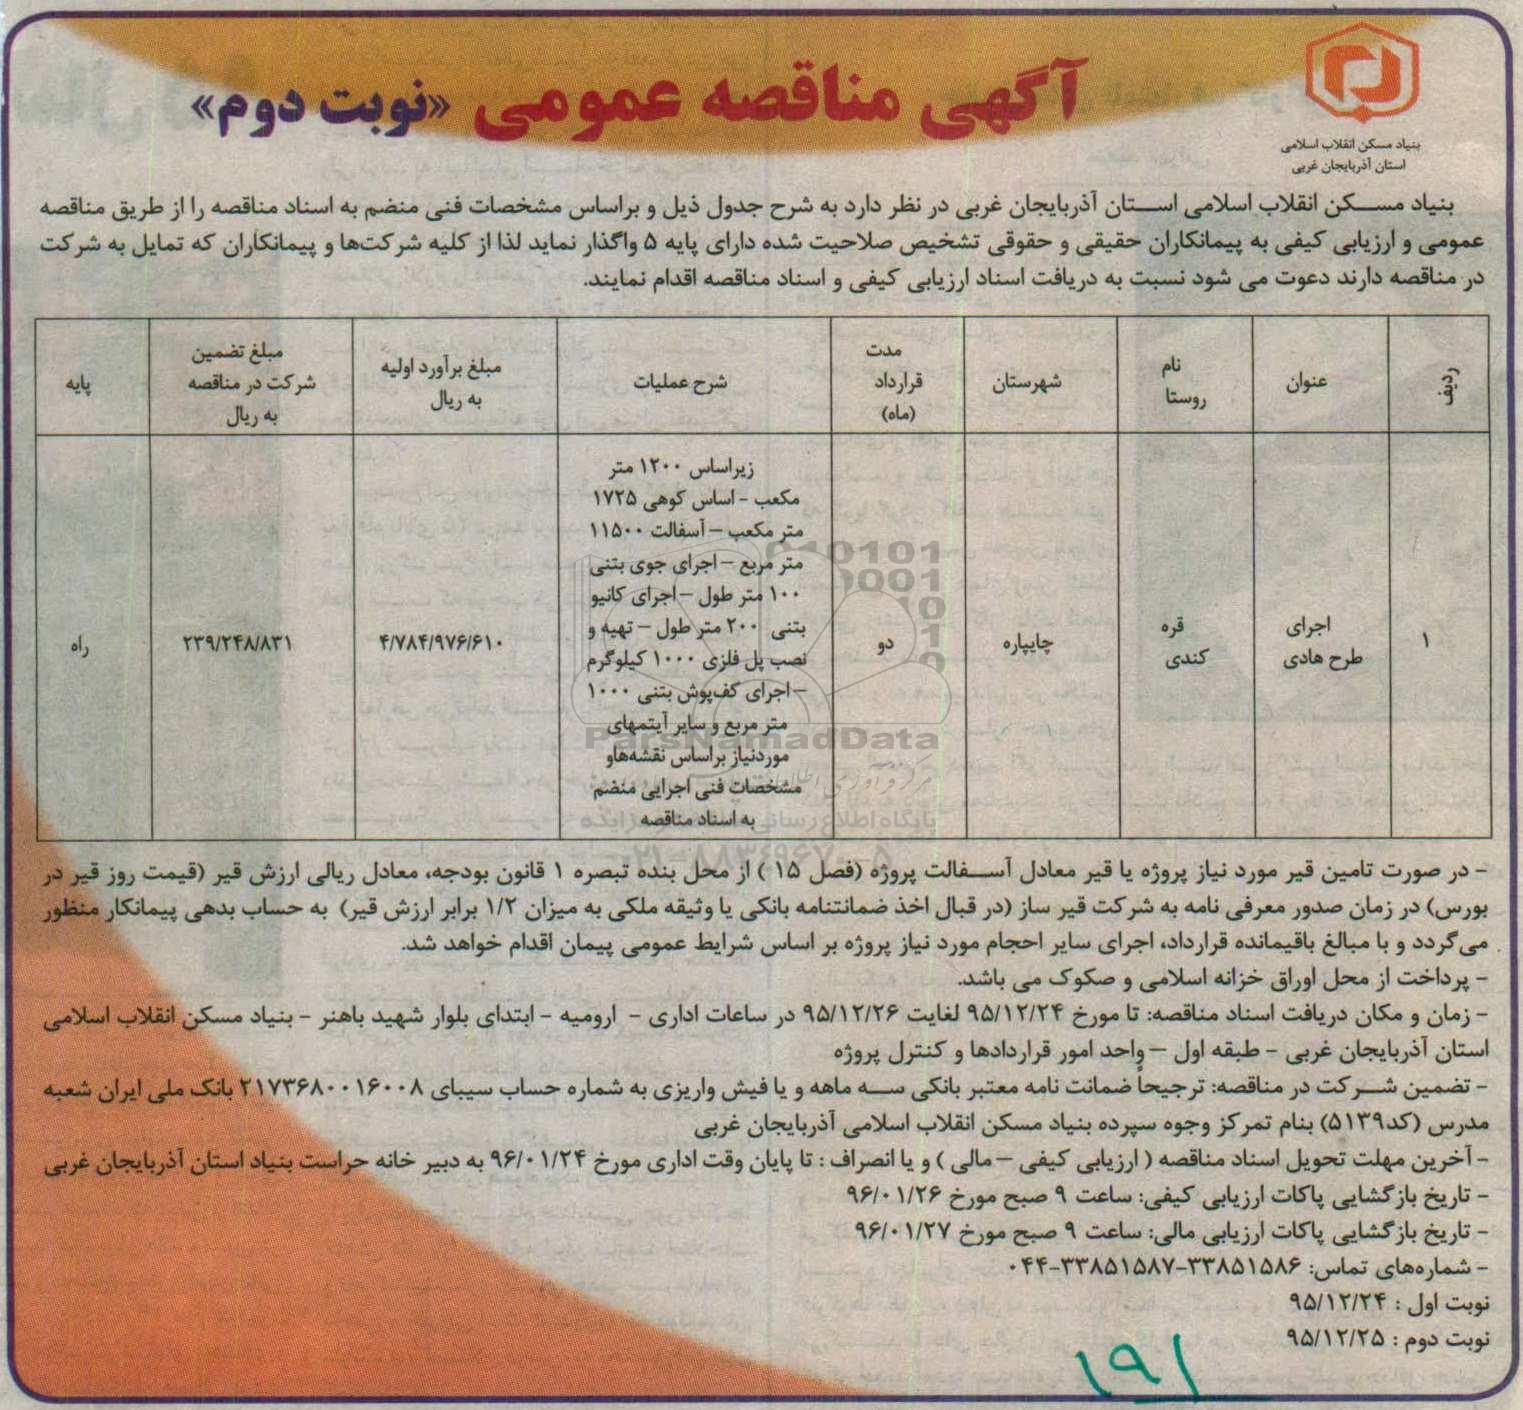 آگهی مناقصه عمومی «نوبت دوم»
بنیاد مسکن انقلاب اسلامی
استان آذربایجان غربی
بنیاد مسکن انقلاب اسلامی استان آذربایجان غربی در نظر دارد به شرح جدول ذیل و براساس مشخصات فنی منضم به اسناد مناقصه را از طریق مناقصه
عمومی و ارزیابی کیفی به پیمانکاران حقیقی و حقوقی تشخیص صلاحیت شده دارای پایه ۵ واگذار نماید لذا از کلیه شرکت‌ها و پیمانکاران که تمایل به شرکت
در مناقصه دارند دعوت می شود نسبت به دریافت اسناد ارزیابی کیفی و اسناد مناقصه اقدام نمایند.
ردیف
عنوان
نام
روستا
شهرستان
مدت
قرارداد
(ماه)
شرح عملیات
مبلغ برآورد اولیه
به ریال
مبلغ تضمین
شرکت در مناقصه
به ریال
پایه
۱
اجرای
طرح هادی
قره
کندی
چایپاره
دو
زیراساس ۱۲۰۰ متر
مکعب - اساس کوهی ۱۷۲۵
متر مکعب – آسفالت ۱۱۵۰۰
متر مربع – اجرای جوی بتنی
۱۰۰ متر طول – اجرای کانیو
بتنی ۲۰۰ متر طول – تهیه و
نصب پل فلزی ۱۰۰۰ کیلوگرم
– اجرای کف‌پوش بتنی ۱۰۰۰
متر مربع و سایر آیتمهای
موردنیاز براساس نقشه‌هاو
مشخصات فنی اجرایی منضم
به اسناد مناقصه
۴/۷۸۴/۹۷۶/۶۱۰
۲۳۹/۲۴۸/۸۳۱
راه
- در صورت تامین قیر مورد نیاز پروژه یا قیر معادل آسفالت پروژه (فصل ۱۵ ) از محل بنده تبصره ۱ قانون بودجه، معادل ریالی ارزش قیر (قیمت روز قیر در
بورس) در زمان صدور معرفی نامه به شرکت قیر ساز (در قبال اخذ ضمانتنامه بانکی یا وثیقه ملکی به میزان ۱/۲ برابر ارزش قیر) به حساب بدهی پیمانکار منظور
می‌گردد و با مبالغ باقیمانده قرارداد، اجرای سایر احجام مورد نیاز پروژه بر اساس شرایط عمومی پیمان اقدام خواهد شد.
- پرداخت از محل اوراق خزانه اسلامی و صکوک می باشد.
- زمان و مکان دریافت اسناد مناقصه: تا مورخ ۹۵/۱۲/۲۴ لغایت ۹۵/۱۲/۲۶ در ساعات اداری - ارومیه - ابتدای بلوار شهید باهنر - بنیاد مسکن انقلاب اسلامی
استان آذربایجان غربی - طبقه اول – واحد امور قراردادها و کنترل پروژه
- تضمین شرکت در مناقصه: ترجیحاً ضمانت نامه معتبر بانکی سه ماهه و یا فیش واریزی به شماره حساب سیبای ۲۱۷۳۶۸۰۰۱۶۰۰۸ بانک ملی ایران شعبه
مدرس (کد۵۱۳۹) بنام تمرکز وجوه سپرده بنیاد مسکن انقلاب اسلامی آذربایجان غربی
- آخرین مهلت تحویل اسناد مناقصه ( ارزیابی کیفی – مالی ) و یا انصراف : تا پایان وقت اداری مورخ ۹۶/۰۱/۲۴ به دبیر خانه حراست بنیاد استان آذربایجان غربی
- تاریخ بازگشایی پاکات ارزیابی کیفی: ساعت ۹ صبح مورخ ۹۶/۰۱/۲۶
- تاریخ بازگشایی پاکات ارزیابی مالی: ساعت ۹ صبح مورخ ۹۶/۰۱/۲۷
- شماره‌های تماس: ۳۳۸۵۱۵۸۶-۳۳۸۵۱۵۸۷-۰۴۴
نوبت اول : ۹۵/۱۲/۲۴
نوبت دوم : ۹۵/۱۲/۲۵
۱۹۱
ParsNamadData